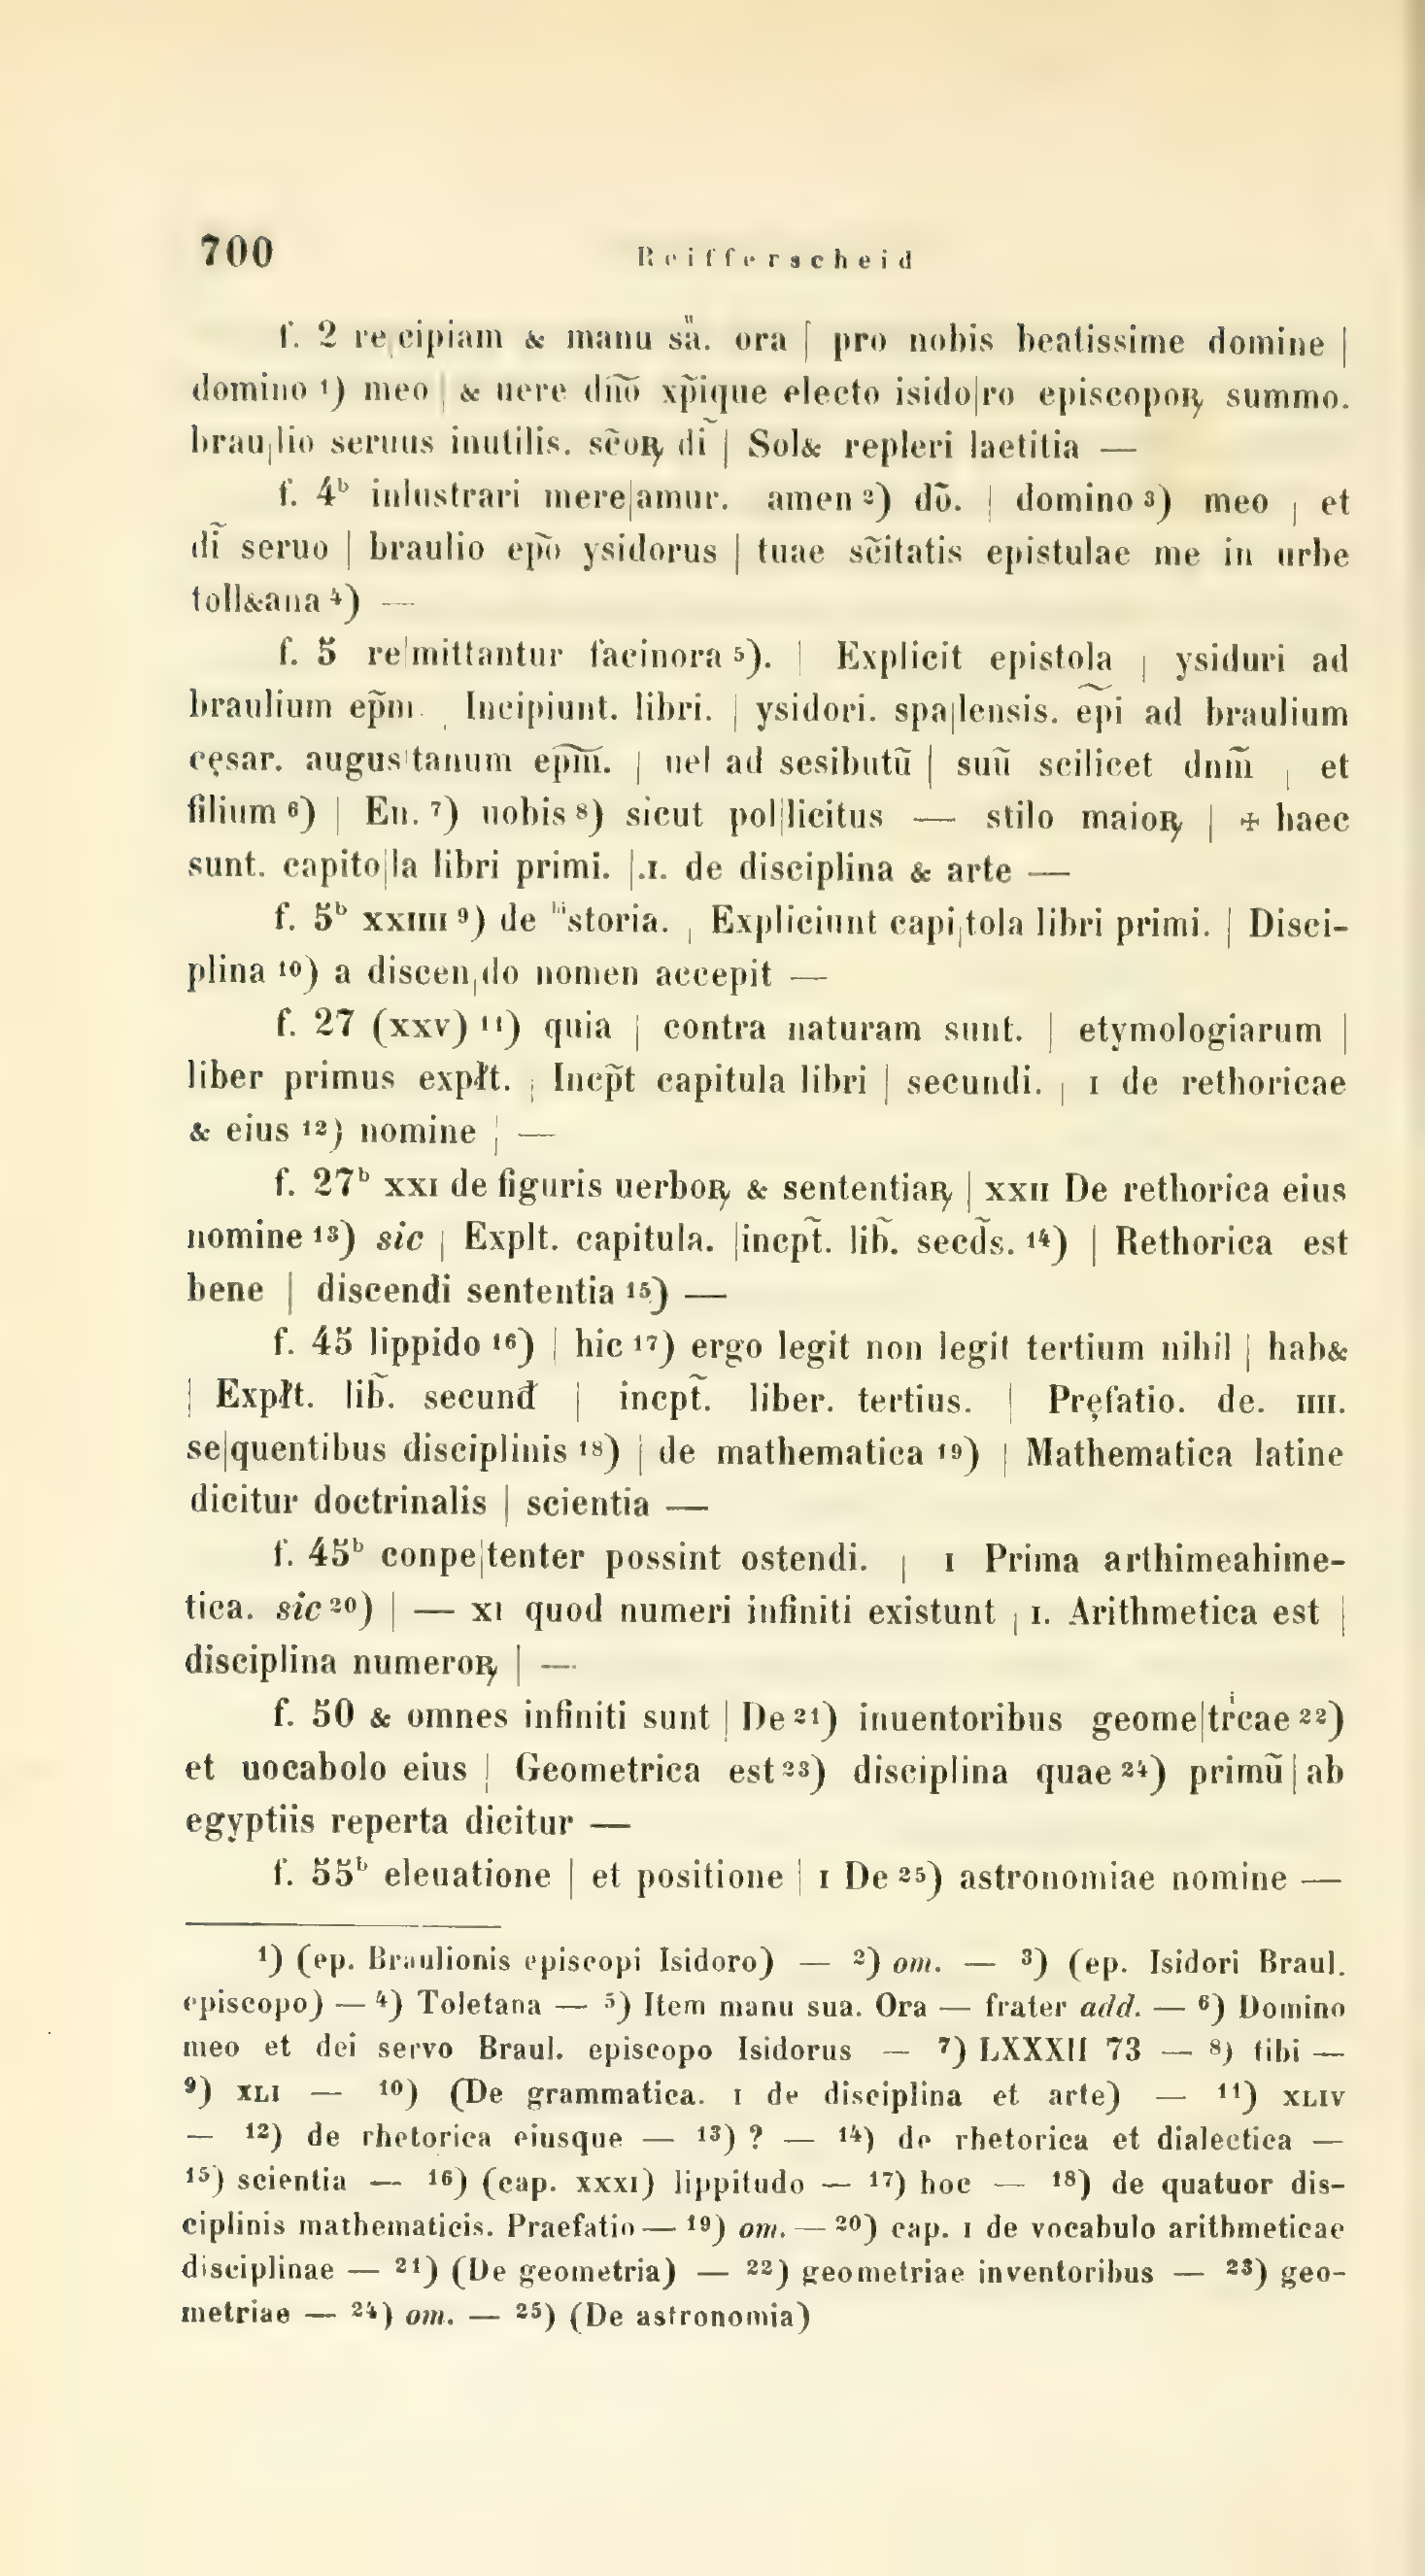 700 Reifferscheid
f. 2 re|cipiam & manu sa̎. ora | pro nobis beatissime domine |
domino ¹) meo | & uere dño̅ xp̃ique electo isido|ro episcopoꝶ summo.
brau|lio seruus inutilis. sc̃oꝶ di̅ | Sol& repleri laetitia —
f. 4ᵇ inlustrari mere|amur. amen ²) dõ. | domino ³) meo | et
di̅ seruo | braulio ep̃o ysidorus | tuae sc̃itatis epistulae me in urbe
toll&ana ⁴) —
f. 5 re|mittantur facinora ⁵). | Explicit epistola | ysiduri ad
braulium ep̃m. | Incipiunt. libri. | ysidori. spa|lensis. ep̃i ad braulium
cęsar. augus|tanum ep̃m̃. | uel ad sesibutũ | suũ scilicet dnm̃ | et
filium ⁶) | En. ⁷) uobis ⁸) sicut pol|licitus — stilo maioꝶ | ✢ haec
sunt. capito|la libri primi. |.ɪ. de disciplina & arte —
f. 5ᵇ xxɪɪɪɪ ⁹) de ʰⁱstoria. | Expliciunt capi|tola libri primi. | Disci-
plina ¹⁰) a discen|do nomen accepit —
f. 27 (xxv) ¹¹) quia | contra naturam sunt. | etymologiarum |
liber primus expłt. | Incp̃t capitula libri | secundi. | ɪ de rethoricae
& eius ¹²) nomine | —
f. 27ᵇ xxɪ de figuris uerboꝶ & sententiaꝶ | xxɪɪ De rethorica eius
nomine ¹³) sic | Explt. capitula. |incpt̃. lib̃. secd̃s. ¹⁴) | Rethorica est
bene | discendi sententia ¹⁵) —
f. 45 lippido ¹⁶) | hic ¹⁷) ergo legit non legit tertium nihil | hab&
| Expłt. lib̃. secunđ | incpt̃. liber. tertius. | Pręfatio. de. ɪɪɪɪ.
se|quentibus disciplinis ¹⁸) | de mathematica ¹⁹) | Mathematica latine
dicitur doctrinalis | scientia —
f. 45ᵇ conpe|tenter possint ostendi. | ɪ Prima arthimeahime-
tica. sic ²⁰) | — xɪ quod numeri infiniti existunt | ɪ. Arithmetica est |
disciplina numeroꝶ | —
f. 50 & omnes infiniti sunt | De ²¹) inuentoribus geome|trⁱcae ²²)
et uocabolo eius | Geometrica est ²³) disciplina quae ²⁴) primũ | ab
egyptiis reperta dicitur —
f. 55ᵇ eleuatione | et positione | ɪ De ²⁵) astronomiae nomine —
¹) (ep. Braulionis episcopi Isidoro) — ²) om. — ³) (ep. Isidori Braul.
episcopo) — ⁴) Toletana — ⁵) Item manu sua. Ora — frater add. — ⁶) Domino
meo et dei servo Braul. episcopo Isidorus — ⁷) LXXXII 73 — ⁸) tibi —
⁹) xʟɪ — ¹⁰) (De grammatica. ɪ de disciplina et arte) — ¹¹) xʟɪv
— ¹²) de rhetorica eiusque — ¹³) ? — ¹⁴) de rhetorica et dialectica —
¹⁵) scientia — ¹⁶) (cap. xxxɪ) lippitudo — ¹⁷) hoc — ¹⁸) de quatuor dis-
ciplinis mathematicis. Praefatio — ¹⁹) om. — ²⁰) cap. ɪ de vocabulo arithmeticae
disciplinae — ²¹) (De geometria) — ²²) geometriae inventoribus — ²³) geo-
metriae — ²⁴) om. — ²⁵) (De astronomia)